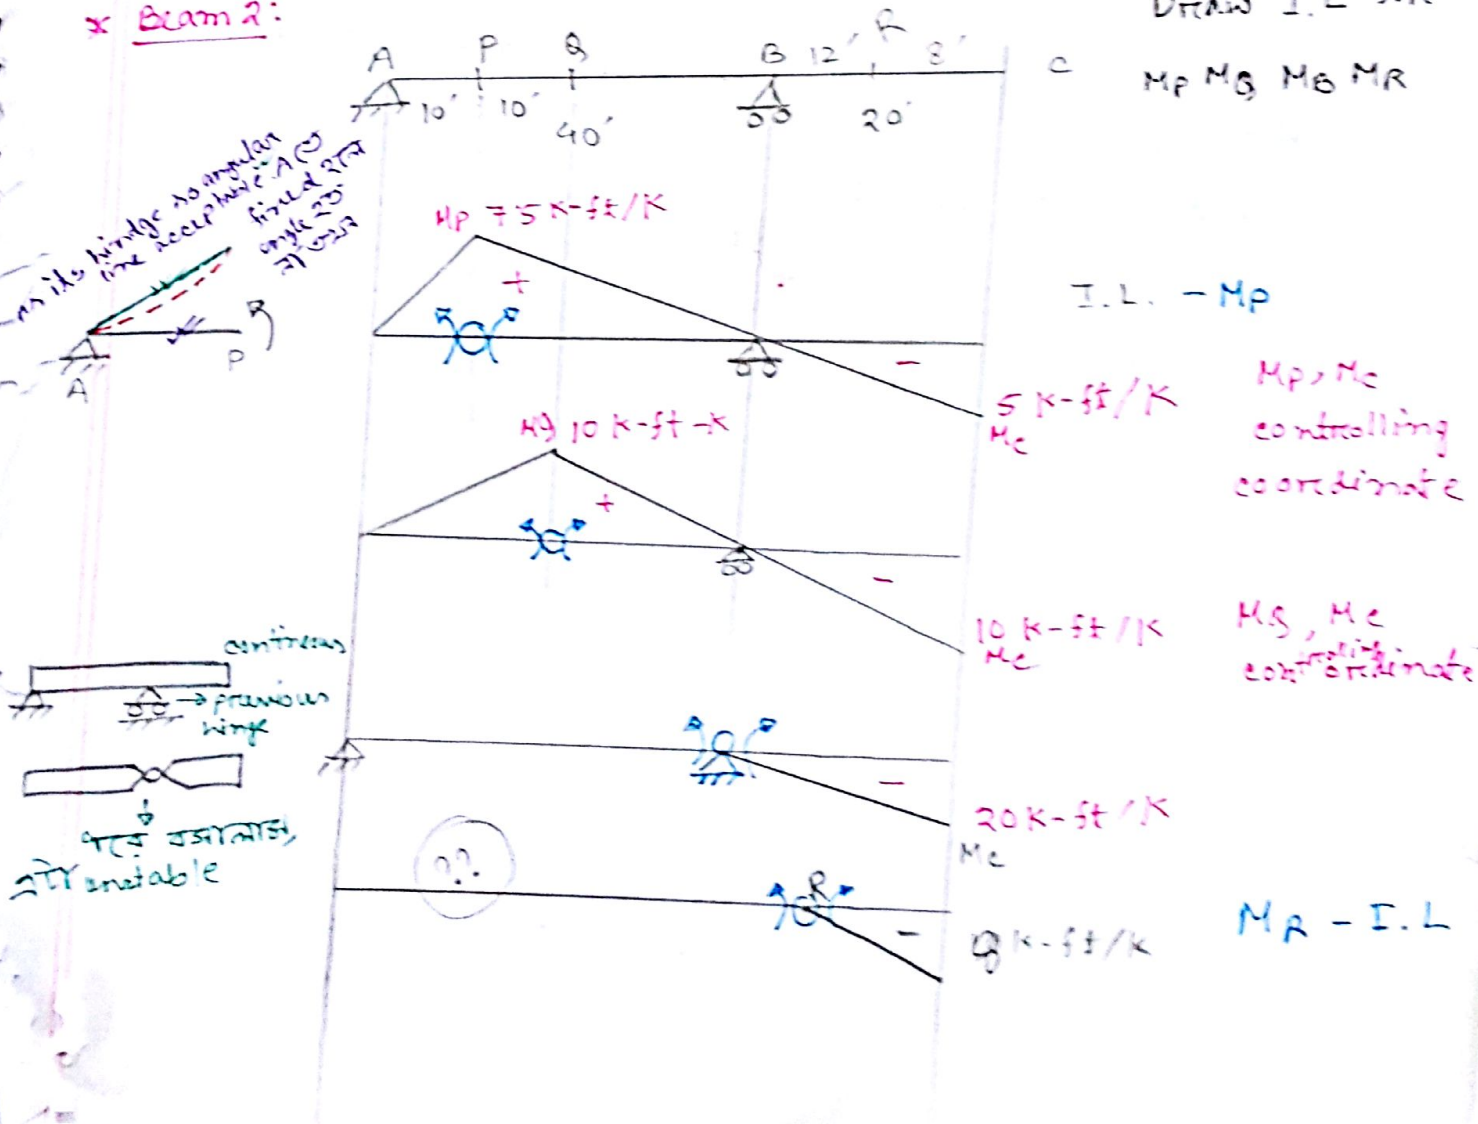 * Beam 2:
Draw I.L
A P Q B 12' R 8' C
MP MQ MB MR
10' 10' 40' 20'
as its hindge no angular
line acceptable. A তে
fixed হলে
angle হয়
না তখন
A P
MP 75 K-ft/K
+
I.L. - MP
-
5 K-ft/K
Mc
MP, Mc
controlling
coordinate
MQ 10 K-ft-K
+
-
10 K-ft/K
Mc
MQ, Mc
controlling
coordinate
continuous
→ previous
hinge
unstable
-
20 K-ft/K
Mc
??
R
-
8 K-ft/K
MR - I.L